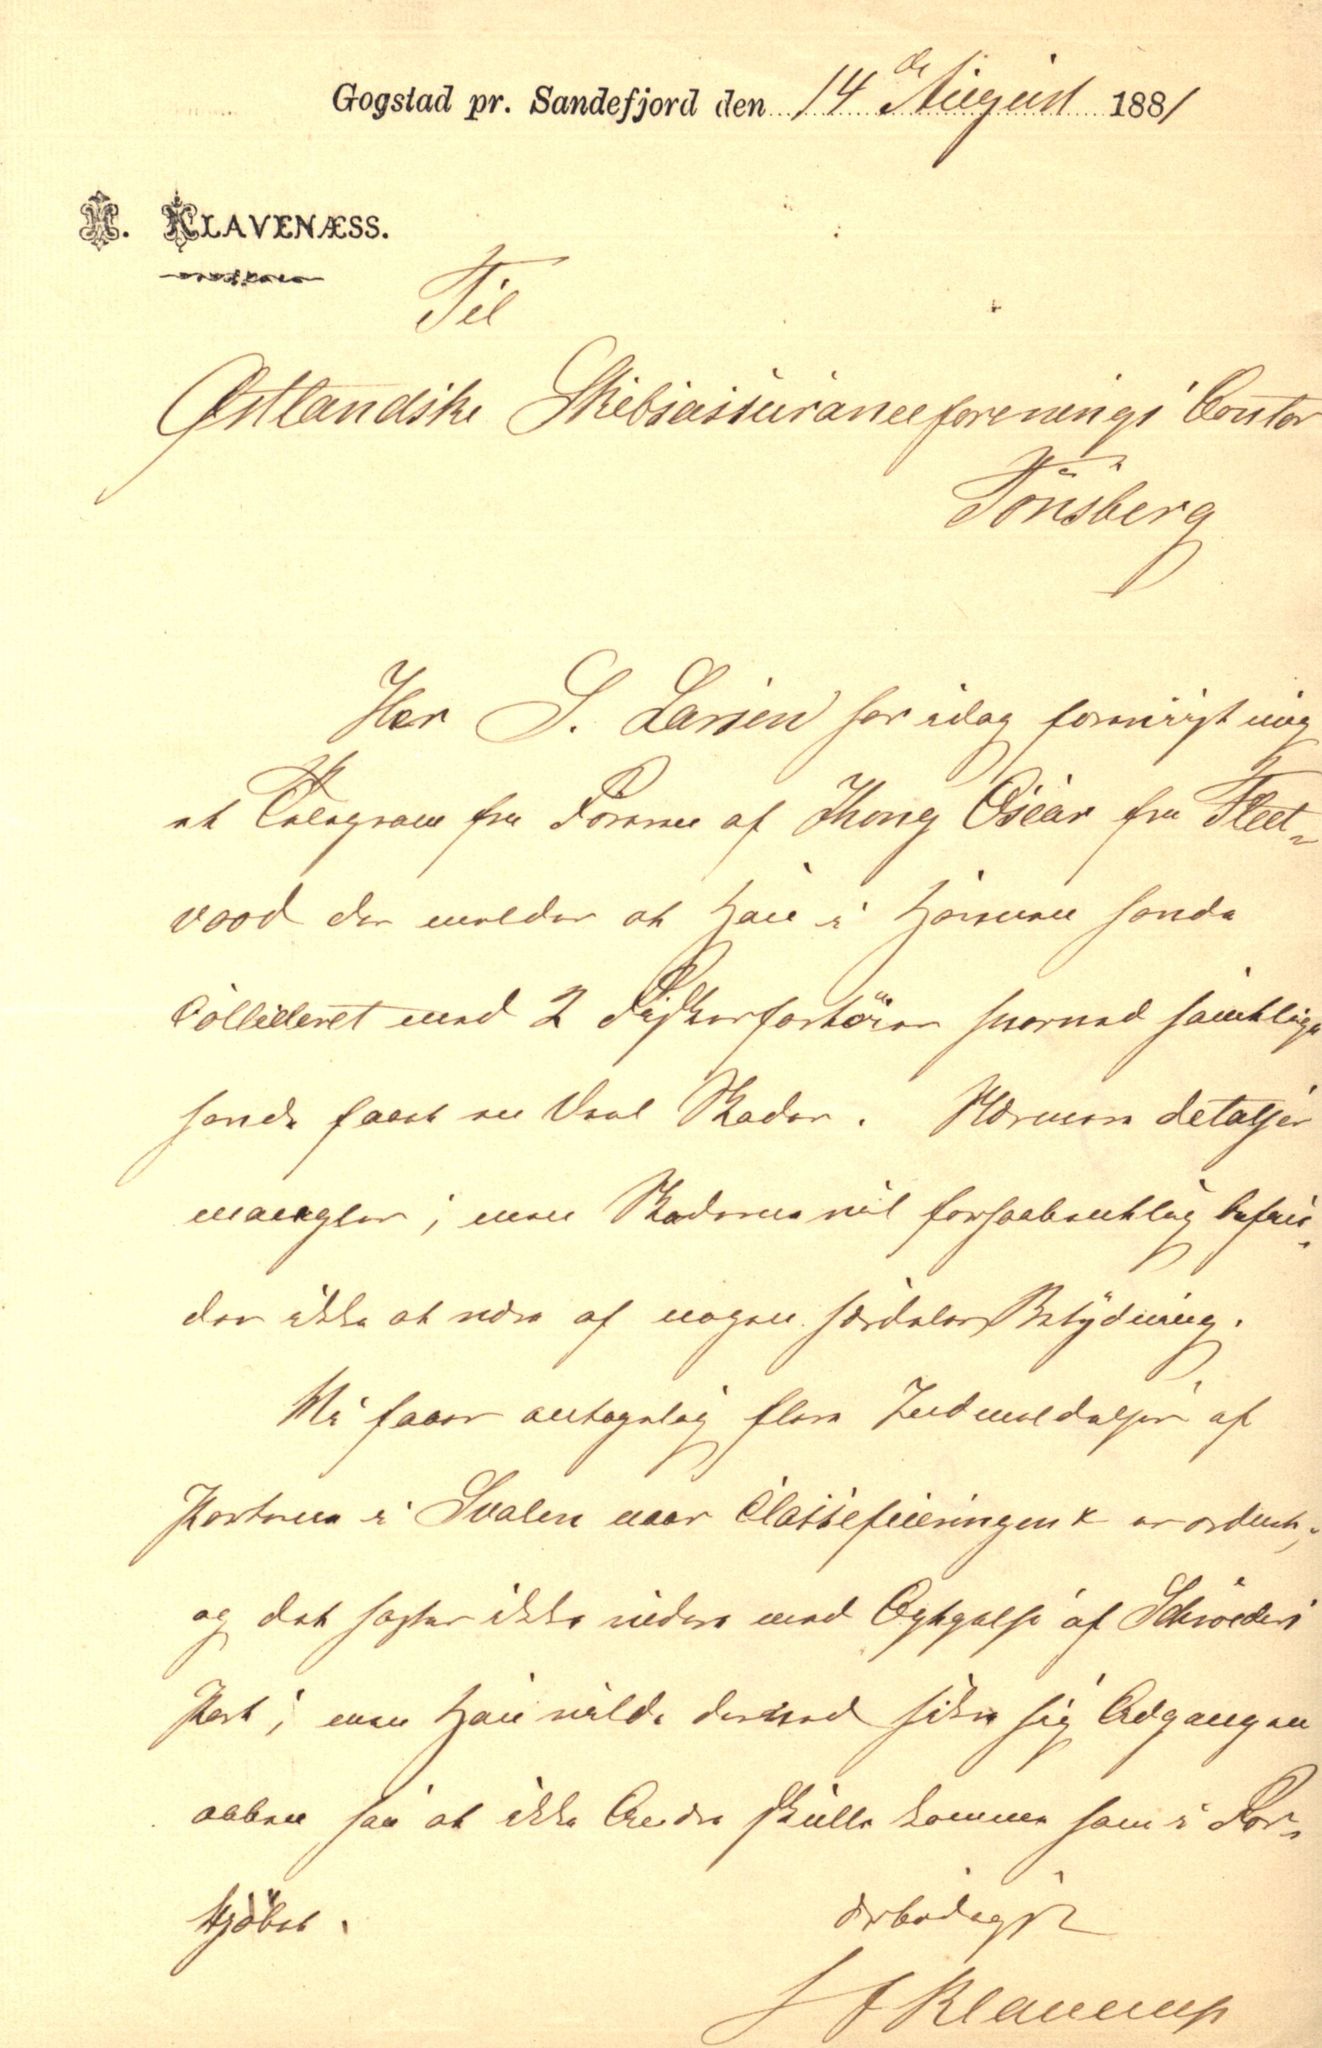 Gogstad pr. Sandefjord den 14de August 1881
KLAVENÆSS.
Til
Østlandske Skibsassuranceforenings Contor
Tönsberg
Herr S. Larsen har idag forevist mig
et Telegram fra Föreren af Kong Oscar fra Fleet-
vood der melder at han i Havnen havde
Collideret med 2 Fiskerfartöier hvorved samtlige
havde faaet en Deel Skader. Nærmere detaljer
mangler; men Skaderne vil forhaabentlig befin-
des ikke at være af nogen særdeles Betydning.
Vi faaer antagelig flere Indmeldelser af
Parterne i Svalen naar Classificeringen er ordnet,
og det haster ikke videre med Opgivelse af Schröders
Part; men han vilde dermed sikre sig Adgangen
aaben saa at ikke Andre skulle komme ham i For-
kjöbet.
Ærbödigst
Klavenæss